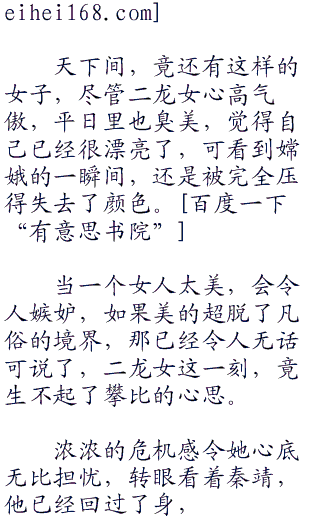 eihei168.com]
天下间，竟还有这样的
女子，尽管二龙女心高气
傲，平日里也臭美，觉得自
己已经很漂亮了，可看到嫦
娥的一瞬间，还是被完全压
得失去了颜色。[百度一下
“有意思书院”]
当一个女人太美，会令
人嫉妒，如果美的超脱了凡
俗的境界，那已经令人无话
可说了，二龙女这一刻，竟
生不起了攀比的心思。
浓浓的危机感令她心底
无比担忧，转眼看着秦靖，
他已经回过了身，